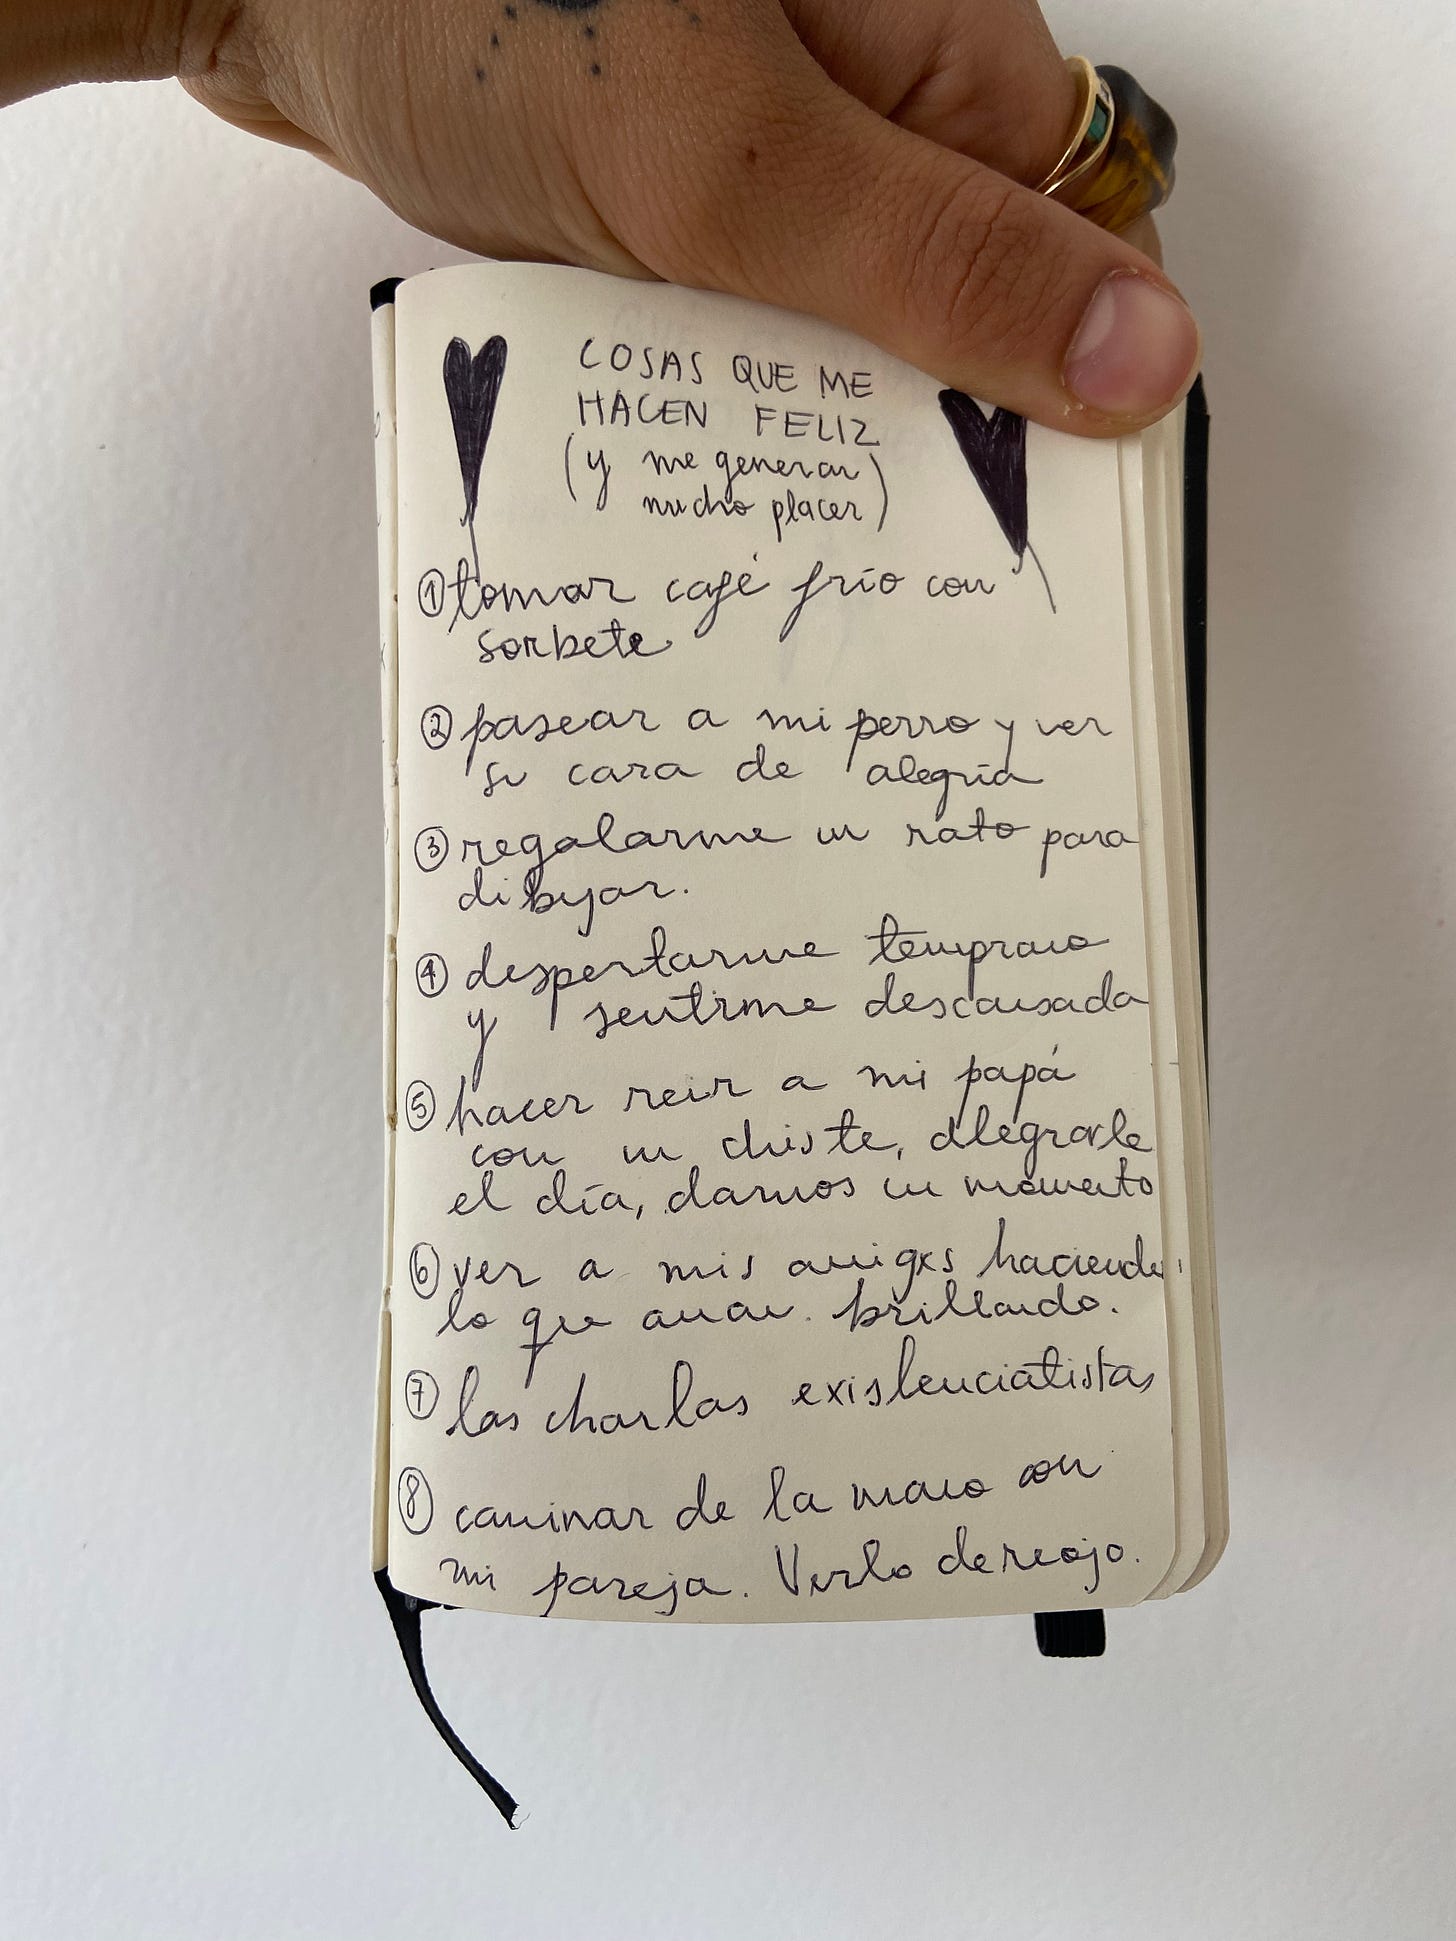 COSAS QUE ME
HACEN FELIZ
(y me generan
mucho placer)
① tomar café frío con
sorbete
② pasear a mi perro y ver
su cara de alegría
③ regalarme un rato para
dibujar.
④ despertarme temprano
y sentirme descansada
⑤ hacer reir a mi papá
con un chiste, alegrarle
el día, darnos un momento
⑥ ver a mis amigxs haciendo
lo que aman. brillando.
⑦ las charlas existencialistas
⑧ caminar de la mano con
mi pareja. Verlo de reojo.